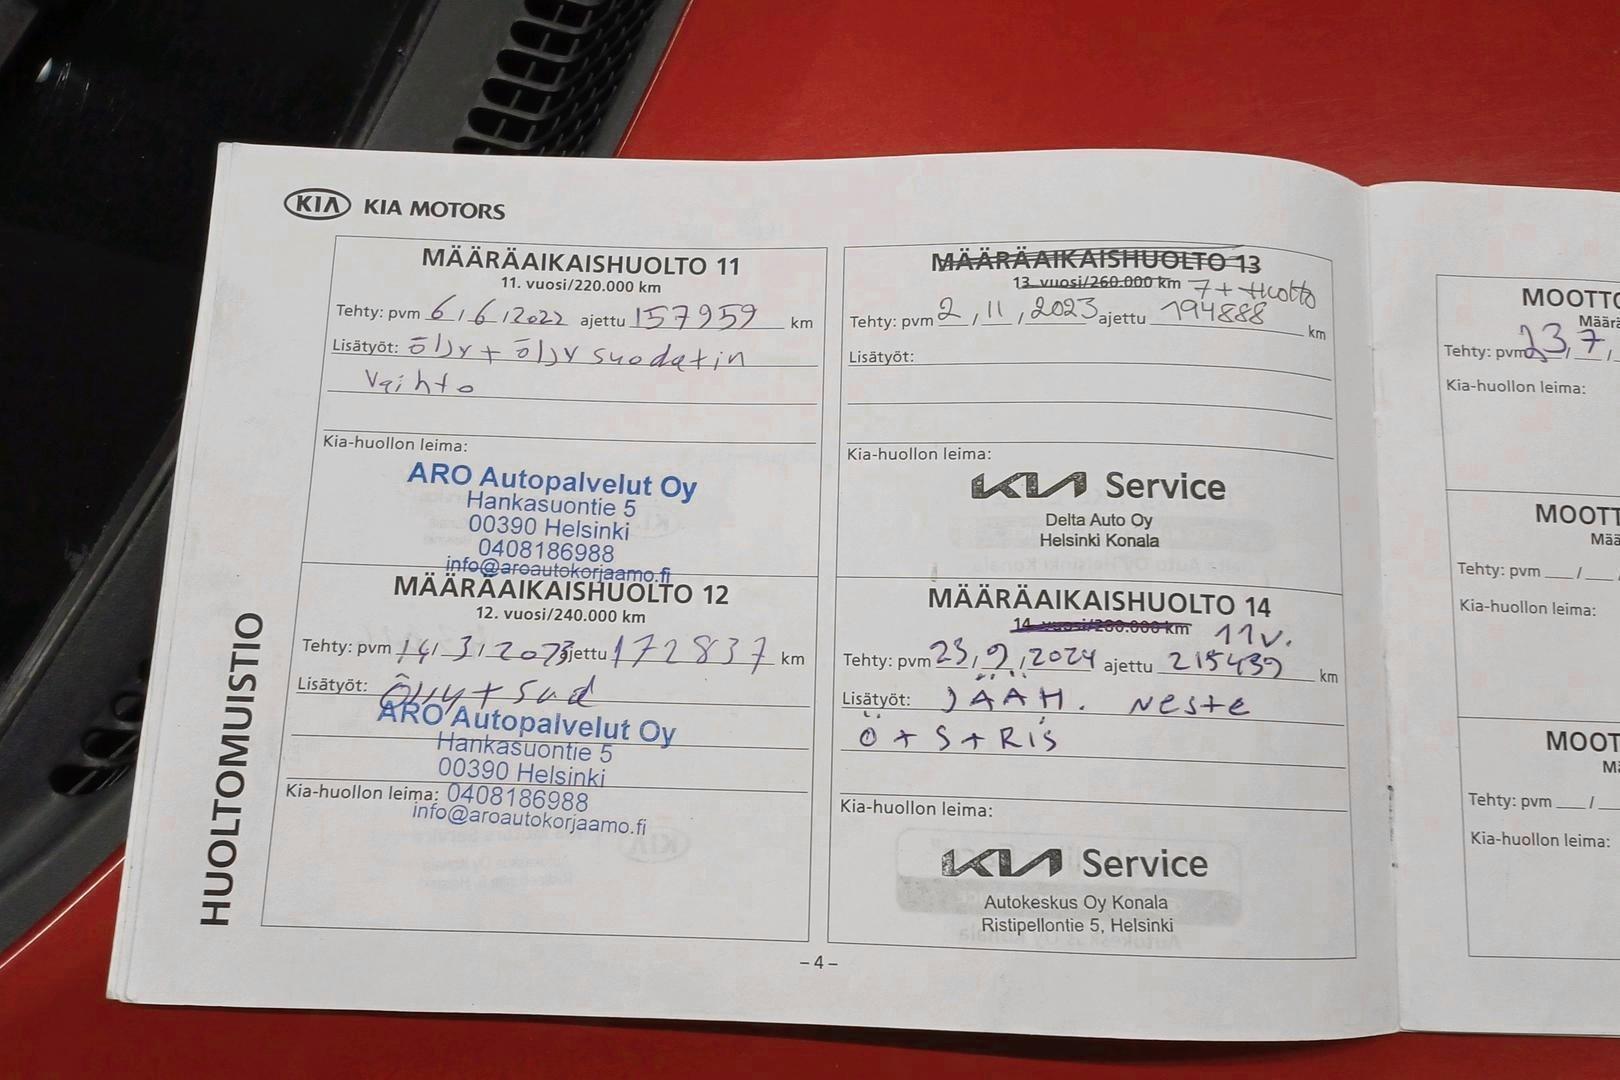 KIA KIA MOTORS
HUOLTOMUISTIO
MÄÄRÄAIKAISHUOLTO 11
11. vuosi/220.000 km
Tehty: pvm 6/6/2022 ajettu 157959 km
Lisätyöt: öljy + öljy suodatin
vaihto
Kia-huollon leima:
ARO Autopalvelut Oy
Hankasuontie 5
00390 Helsinki
0408186988
info@aroautokorjaamo.fi
MÄÄRÄAIKAISHUOLTO 12
12. vuosi/240.000 km
Tehty: pvm 14/3/2023 ajettu 172837 km
Lisätyöt: Öljy + sud
ARO Autopalvelut Oy
Hankasuontie 5
00390 Helsinki
Kia-huollon leima: 0408186988
info@aroautokorjaamo.fi
MÄÄRÄAIKAISHUOLTO 13
13. vuosi/260.000 km 7+ Huolto
Tehty: pvm 2/11/2023 ajettu 194888 km
Lisätyöt:
Kia-huollon leima:
KIA Service
Delta Auto Oy
Helsinki Konala
MÄÄRÄAIKAISHUOLTO 14
14. vuosi/280.000 km 11v.
Tehty: pvm 23/9/2024 ajettu 215439 km
Lisätyöt: JÄÄH. NESTE
Ö + S + RIS
Kia-huollon leima:
KIA Service
Autokeskus Oy Konala
Ristipellontie 5, Helsinki
– 4 –
MOOTTO
Määrä
Tehty: pvm 23/7/
Kia-huollon leima:
MOOTT
Mää
Tehty: pvm /
Kia-huollon leima:
MOOT
Mä
Tehty: pvm /
Kia-huollon leima: